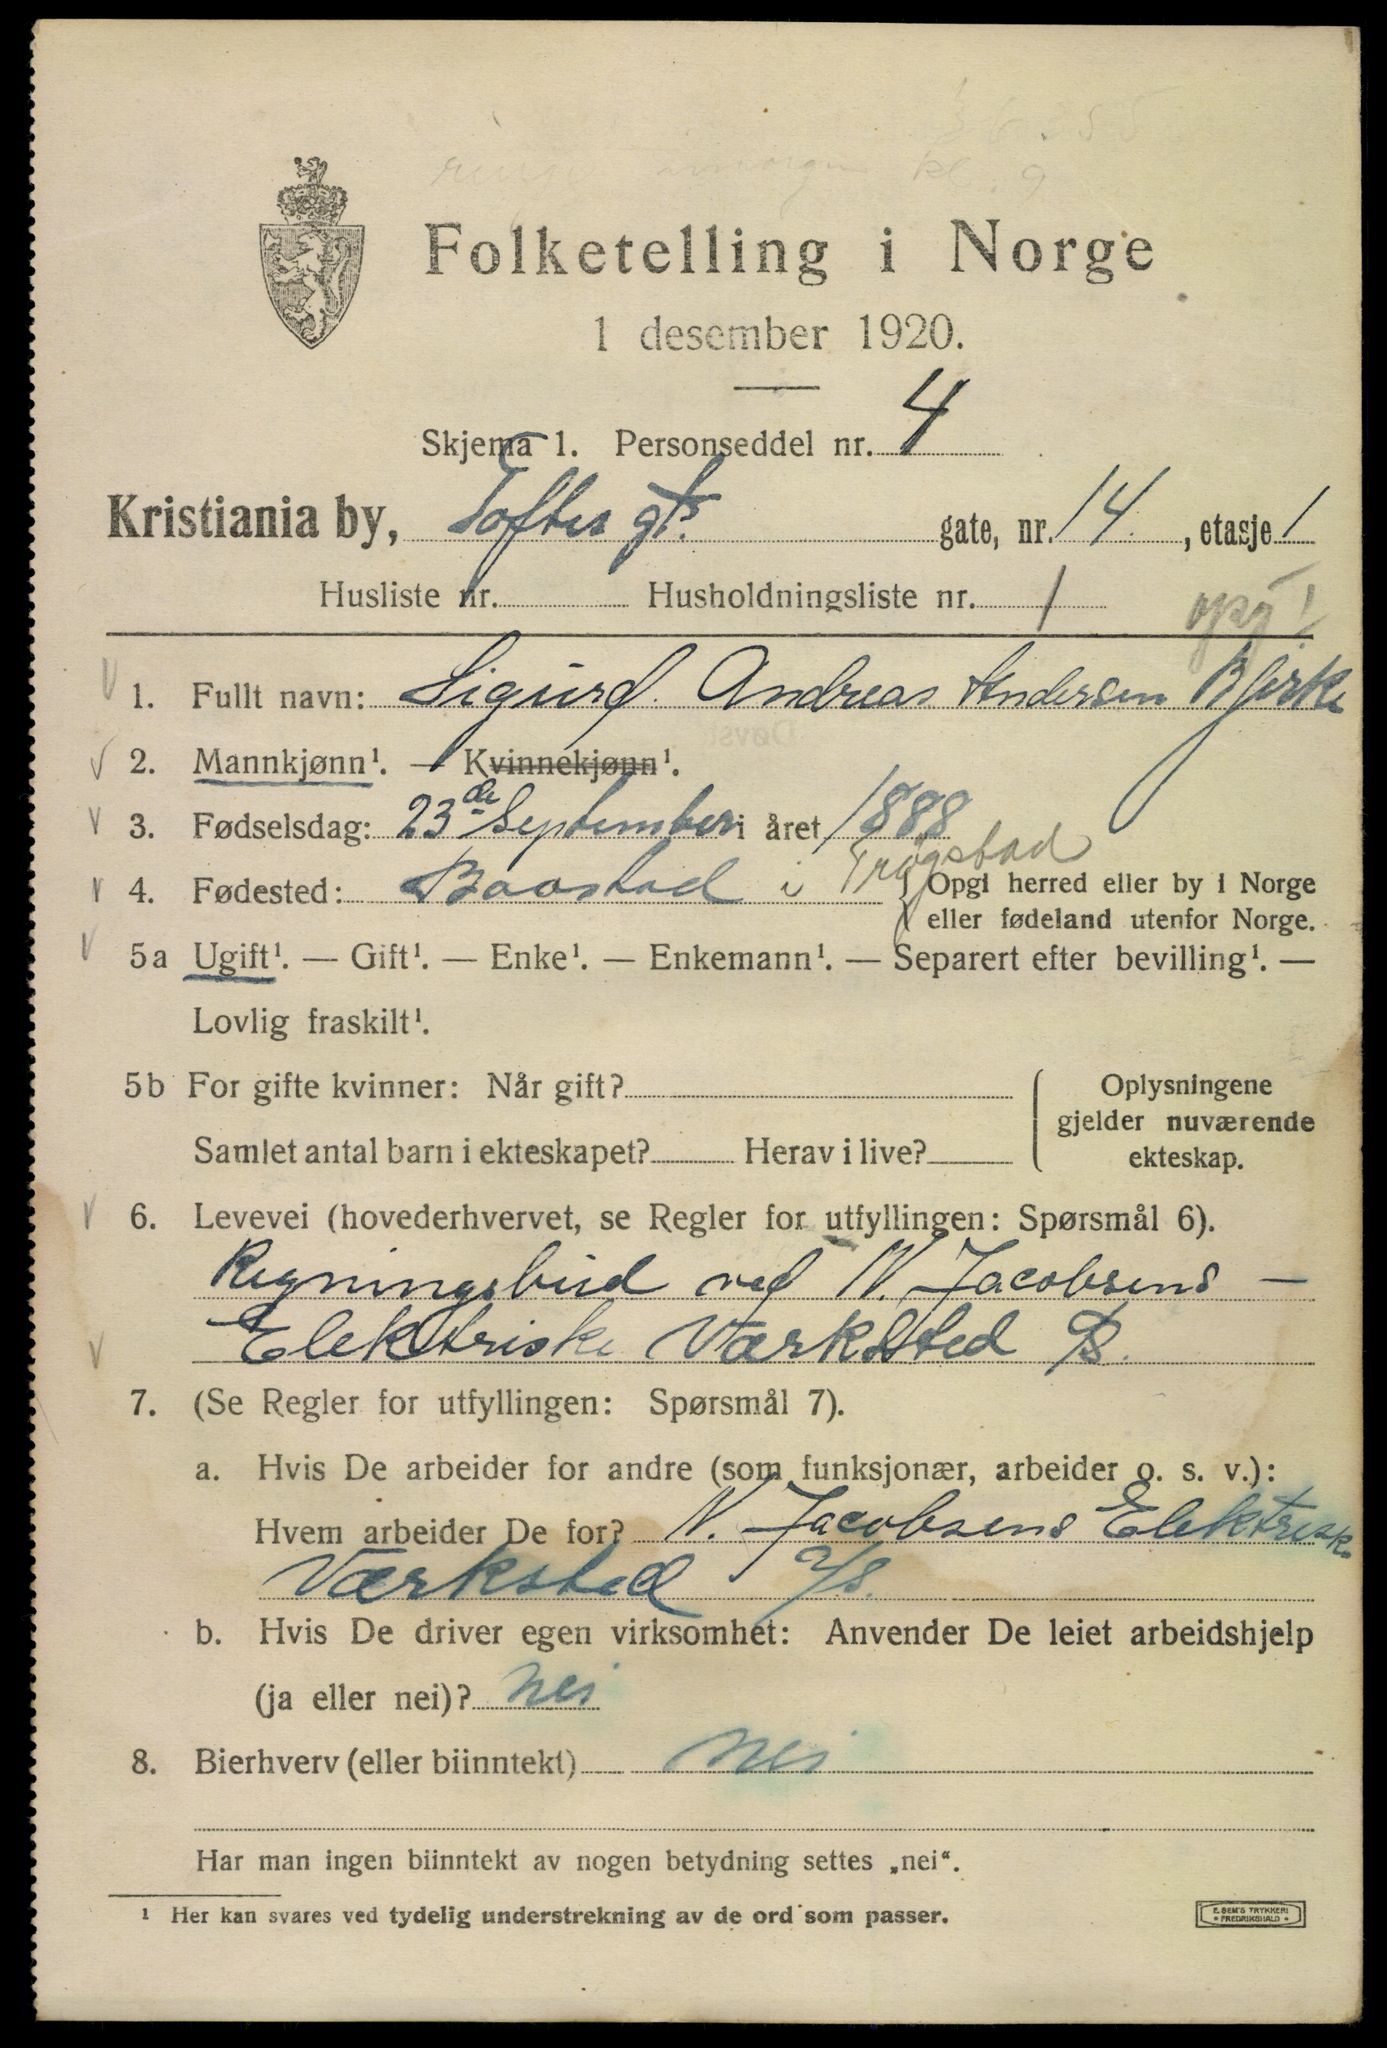 Folketelling i Norge
1 desember 1920.
Skjema 1. Personseddel nr. 4
Kristiania by, Toftes gt. gate, nr. 14. , etasje 1
Husliste nr. Husholdningsliste nr. 1
1. Fullt navn: Sigurd Andreas Andersen Bjerke
2. Mannkjønn¹. — Kvinnekjønn¹.
3. Fødselsdag: 23de September i året 1888
4. Fødested: Baastad i Trøgstad { Opgi herred eller by i Norge
eller fødeland utenfor Norge.
5a Ugift¹. — Gift¹. — Enke¹. — Enkemann¹. — Separert efter bevilling¹. —
Lovlig fraskilt¹.
5b For gifte kvinner: Når gift? Oplysningene
gjelder nuværende
Samlet antal barn i ekteskapet? Herav i live? ekteskap.
6. Levevei (hovederhvervet, se Regler for utfyllingen: Spørsmål 6).
Regningsbud ved N. Jacobsens —
Elektriske Værksted
7. (Se Regler for utfyllingen: Spørsmål 7).
a. Hvis De arbeider for andre (som funksjonær, arbeider o. s. v.):
Hvem arbeider De for? N. Jacobsens Elektriske
Værksted A/S.
b. Hvis De driver egen virksomhet: Anvender De leiet arbeidshjelp
(ja eller nei)? nei
8. Bierhverv (eller biinntekt) nei
Har man ingen biinntekt av nogen betydning settes „nei“.
¹ Her kan svares ved tydelig understrekning av de ord som passer.
E. SEM'S TRYKKERI
• FREDRIKSHALD •